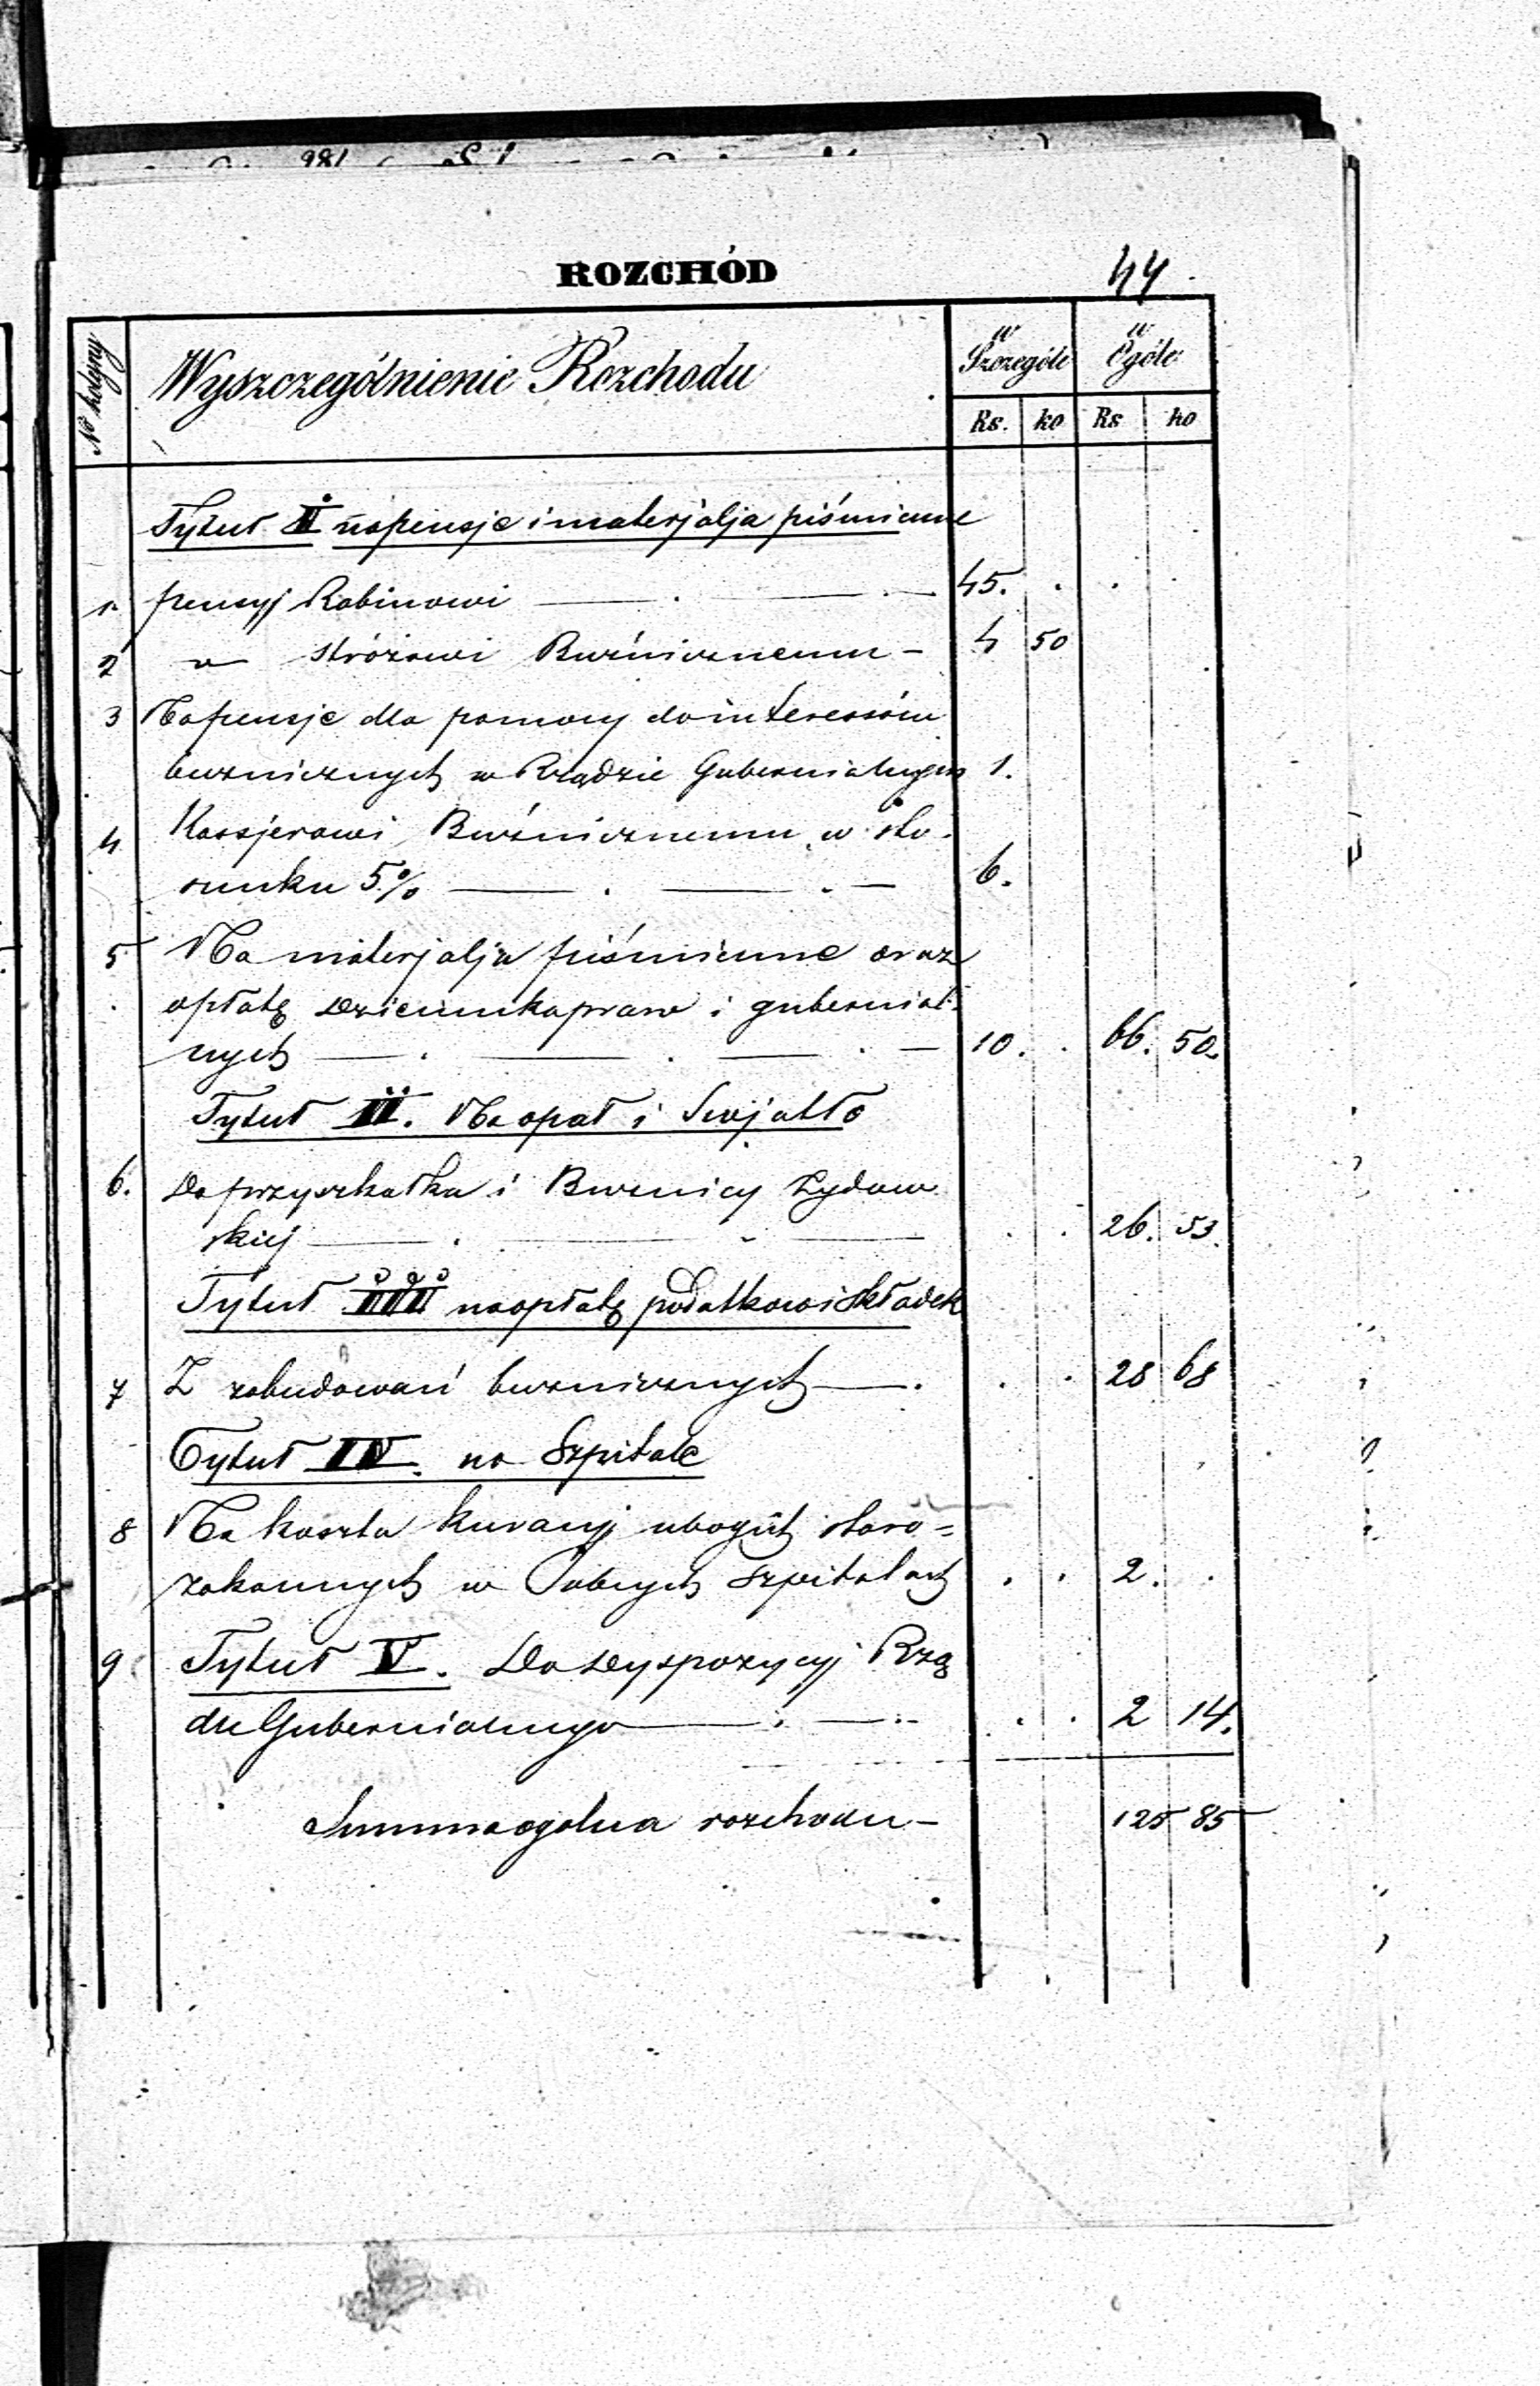 ROZCHÓD 44
No kolejny Wyszczególnienie Rozchodu w Szczególe w Ogóle
Rs. ko Rs ko
Tytuł I na pensje i materjalja piśmienne
1. pensyj Rabinowi — . — 45. . . .
2 " stróżowi Buźnicznemu — 4 50
3 Na pensje dla pomocy do interessów
buznicznych w Rządzie Gubernialnym 1.
4 Kassjerowi Buźnicznemu w sto-
sunku 5% — . — . — 6.
5 Na materjalja piśmienne oraz
opłatę Dziennika praw i gubernial-
nych — . — . — . — 10. . 66. 50.
Tytuł II. Na opał i Swjatło
6. Do przyszkołka i Buznicy Żydow
skiej — . — - — . . 26. 53.
Tytuł III na opłatę podatkow i składek
7 Z zabudowań buznicznych — . . . 28 68
Tytuł IV. na Szpitale
8 Na koszta kuracyj ubogich staro=
zakonnych w Szpitalach . . 2. .
9 Tytuł V. Do dyspozycyj Rzą
du Gubernialnego — . — .. . . 2 14.
Summa ogolna rozchodu — 125 85